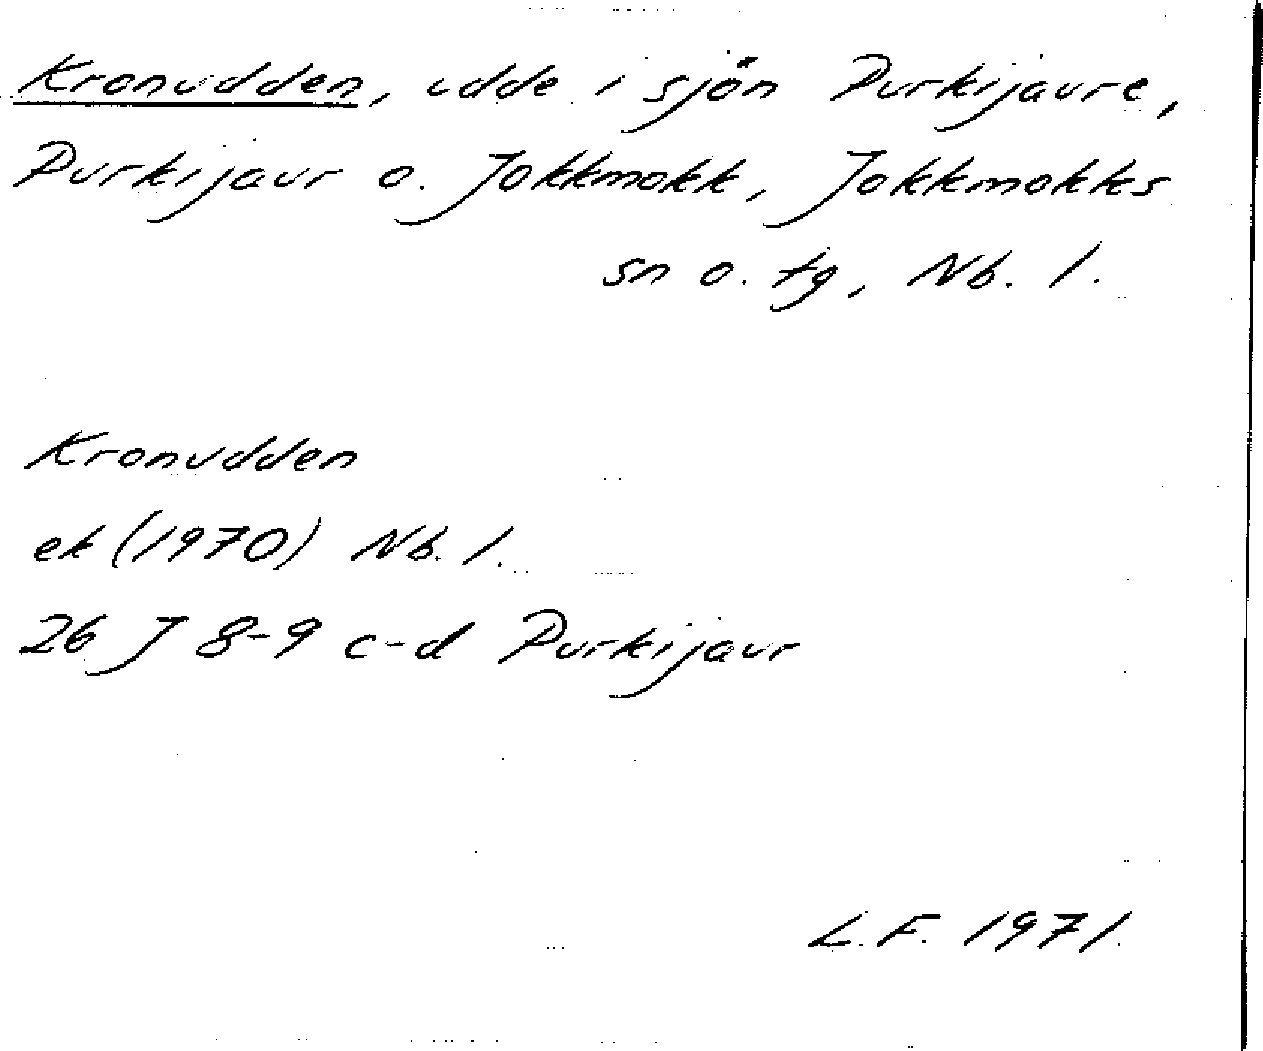 Kronudden, udde i sjön Purkijaure,
Purkijaur o. Jokkmokk, Jokkmokks
sn o. tg, Nb. l.
Kronudden
ek (1970) Nb. l.
26 J 8-9 c-d Purkijaur
L.F. 1971.